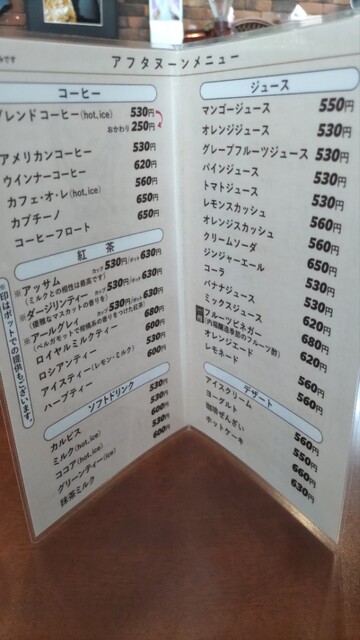 アフタヌーンメニュー
コーヒー
ブレンドコーヒー(hot,ice) 530円
おかわり 250円
アメリカンコーヒー 530円
ウインナーコーヒー 620円
カフェ・オ・レ(hot,ice) 560円
カプチーノ 650円
コーヒーフロート 650円
紅 茶
※アッサム カップ530円/ポット630円
(ミルクとの相性は最高です)
※ダージリンティー カップ530円/ポット630円
(優雅なマスカットの香りを)
※アールグレイ カップ530円/ポット630円
(ベルガモットで柑橘系の香りをつけた紅茶)
ロイヤルミルクティー 680円
ロシアンティー 600円
アイスティー(レモン・ミルク) 530円
ハーブティー 600円
※印はポットでの提供もございます。
ソフトドリンク
カルピス 530円
ミルク(hot,ice) 530円
ココア(hot,ice) 600円
グリーンティー(ice) 530円
抹茶ミルク 600円
ジュース
マンゴージュース 550円
オレンジジュース 530円
グレープフルーツジュース 530円
パインジュース 530円
トマトジュース 530円
レモンスカッシュ 560円
オレンジスカッシュ 560円
クリームソーダ 650円
ジンジャーエール 530円
コーラ 530円
バナナジュース 620円
ミックスジュース 680円
フルーツビネガー 620円
オレンジエード 560円
レモネード 560円
デザート
アイスクリーム 560円
ヨーグルト 550円
珈琲ぜんざい 660円
ホットケーキ 630円